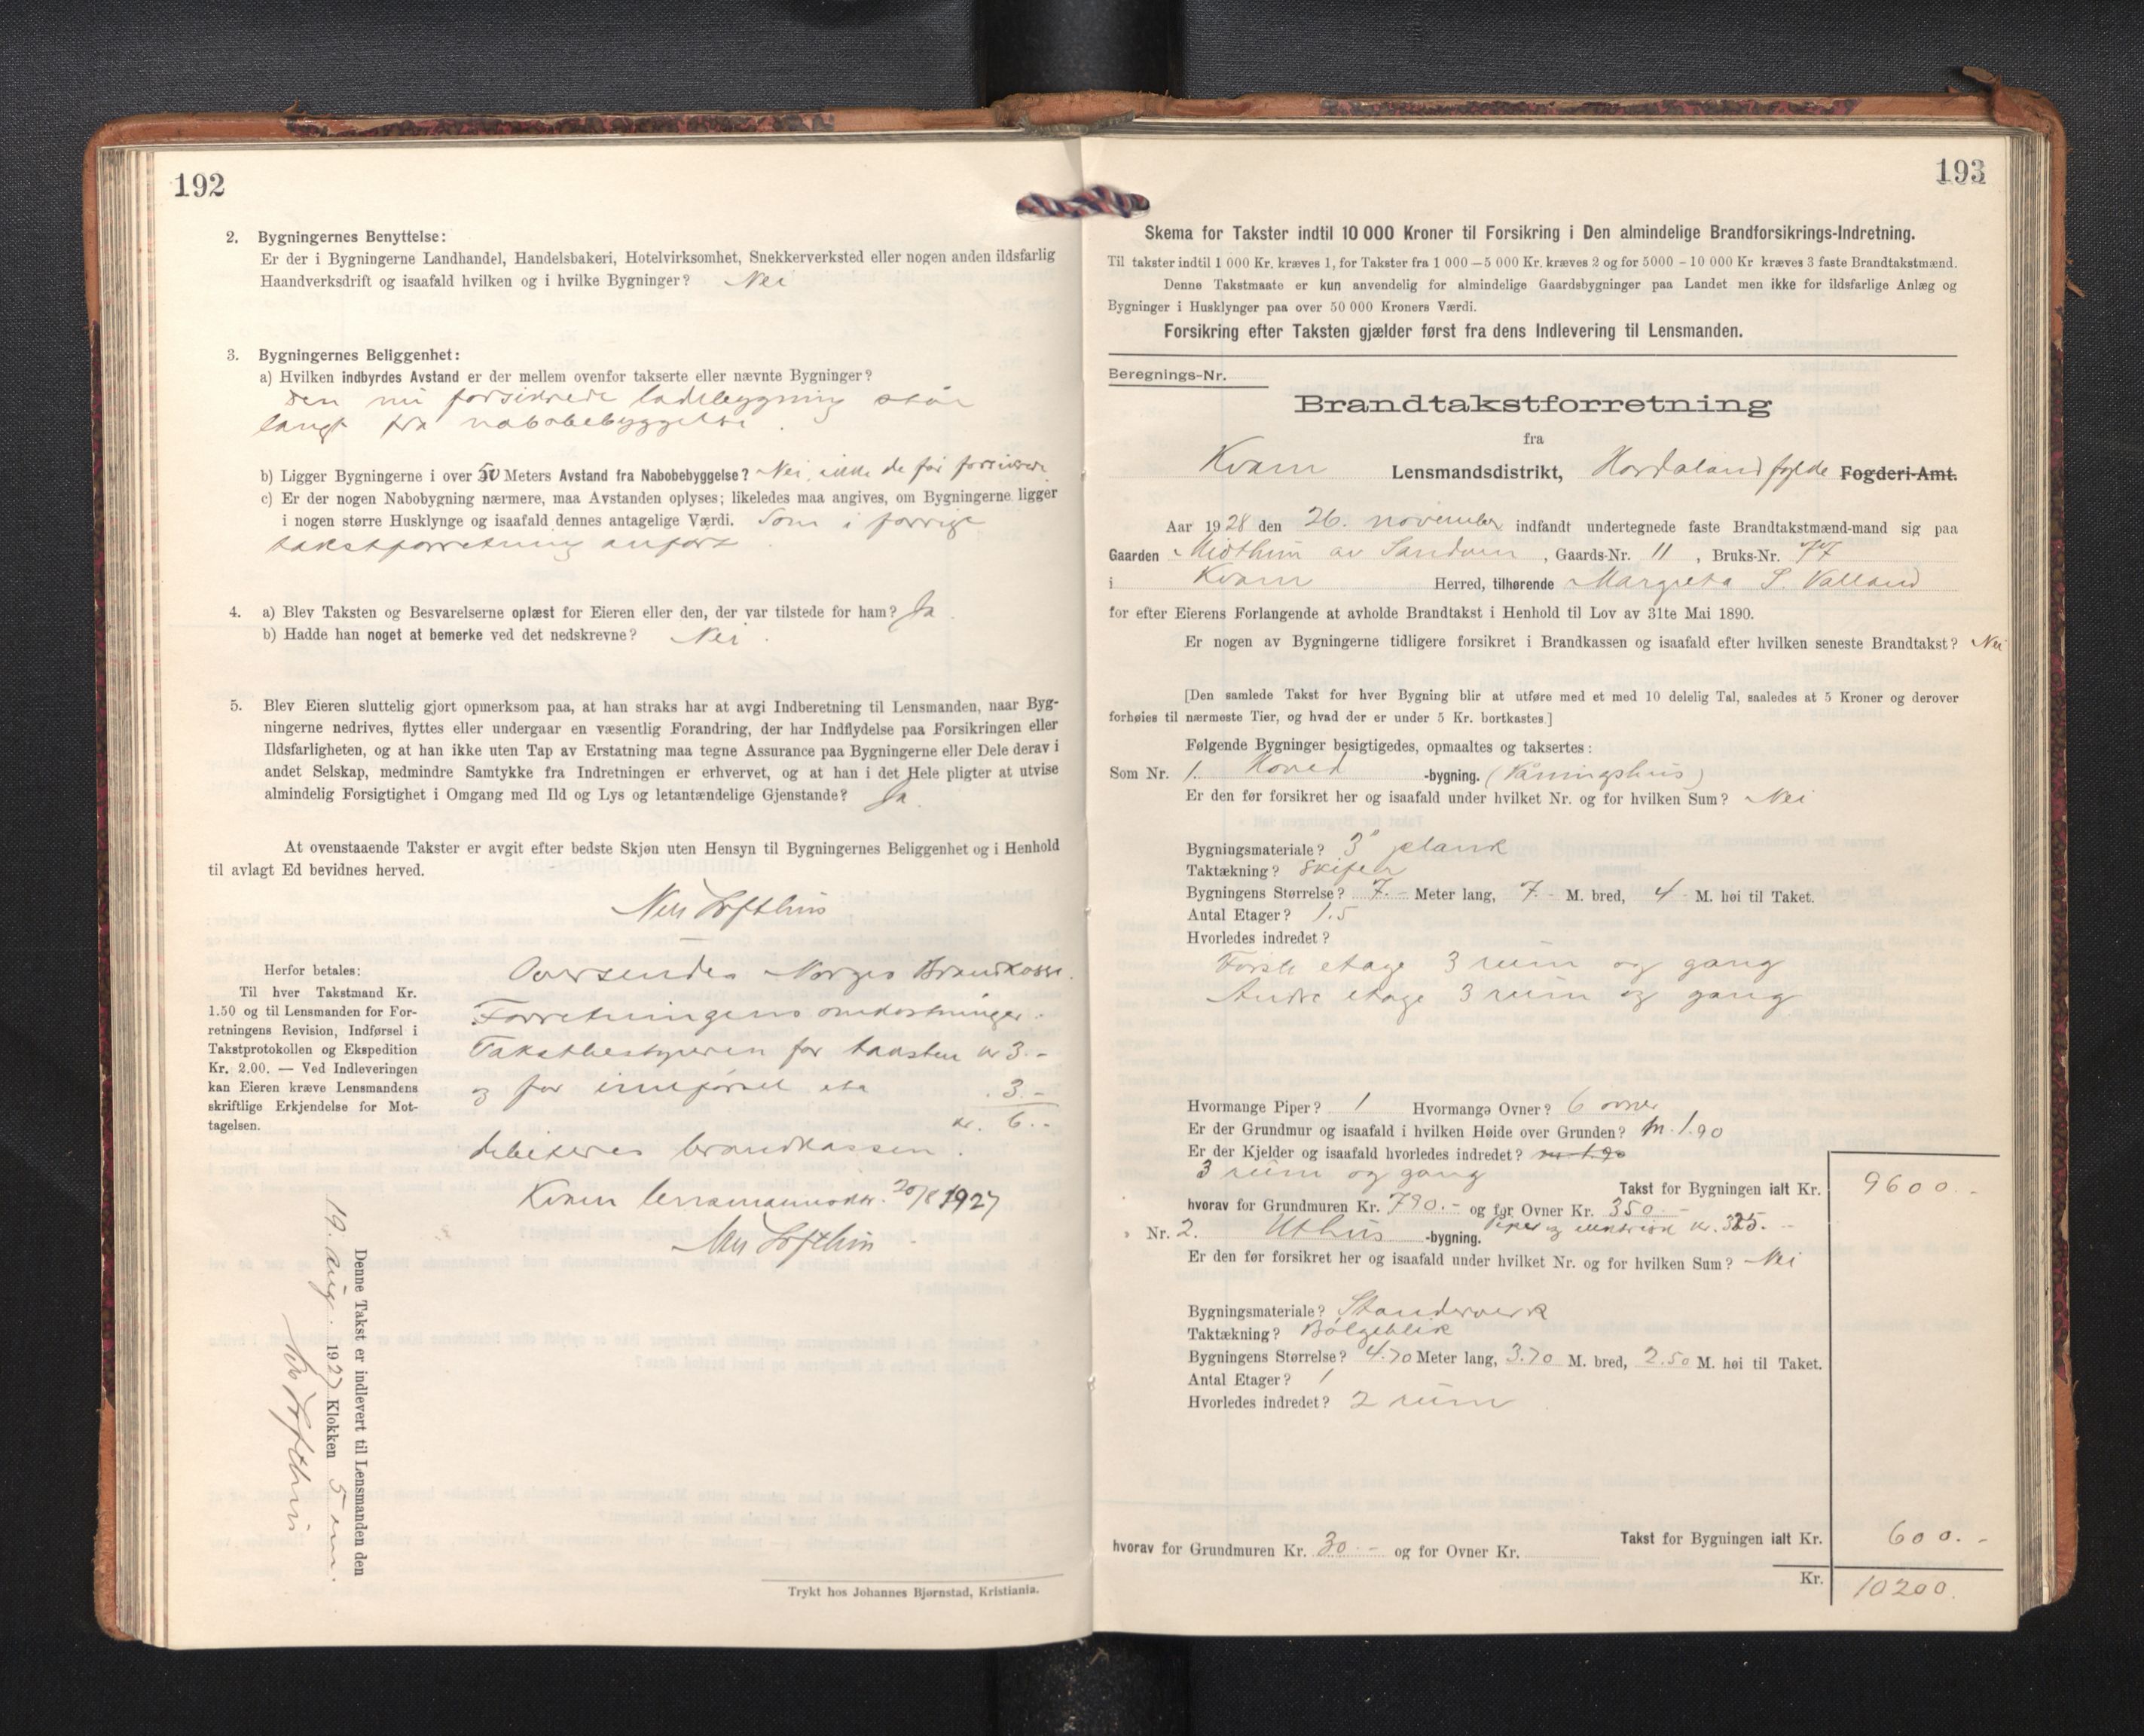 192
2. Bygningernes Benyttelse:
Er der i Bygningerne Landhandel, Handelsbakeri, Hotelvirksomhet, Snekkerverksted eller nogen anden ildsfarlig
Haandverksdrift og isaafald hvilken og i hvilke Bygninger? Nei
3. Bygningernes Beliggenhet:
a) Hvilken indbyrdes Avstand er der mellem ovenfor takserte eller nævnte Bygninger?
Den nu forsikrede ladebygning står
langt fra nabobebyggelse.
b) Ligger Bygningerne i over 50 Meters Avstand fra Nabobebyggelse? Nei, ikke de før forsikrede
c) Er der nogen Nabobygning nærmere, maa Avstanden oplyses; likeledes maa angives, om Bygningerne ligger
i nogen større Husklynge og isaafald dennes antagelige Værdi. Som i forrige
takstforretning anført.
4. a) Blev Taksten og Besvarelserne oplæst for Eieren eller den, der var tilstede for ham? Ja.
b) Hadde han noget at bemerke ved det nedskrevne? Nei.
5. Blev Eieren sluttelig gjort opmerksom paa, at han straks har at avgi Indberetning til Lensmanden, naar Byg-
ningerne nedrives, flyttes eller undergaar en væsentlig Forandring, der har Indflydelse paa Forsikringen eller
Ildsfarligheten, og at han ikke uten Tap av Erstatning maa tegne Assurance paa Bygningerne eller Dele derav i
andet Selskap, medmindre Samtykke fra Indretningen er erhvervet, og at han i det Hele pligter at utvise
almindelig Forsigtighet i Omgang med Ild og Lys og letantændelige Gjenstande? Ja.
At ovenstaaende Takster er avgit efter bedste Skjøn uten Hensyn til Bygningernes Beliggenhet og i Henhold
til avlagt Ed bevidnes herved.
Nils Lofthus
Oversendes Norges Brandkasse.
Forretningens omkostninger.
Takstbestyreren for taksten kr 3.-
og for innførsel eta 3.-
kr. 6.-
debiteres brandkassen.
Kvam lensmannsktr. 20/8 1927
Nils Lofthus
Herfor betales:
Til hver Takstmand Kr.
1.50 og til Lensmanden for For-
retningens Revision, Indførsel i
Takstprotokollen og Ekspedition
Kr. 2.00. — Ved Indleveringen
kan Eieren kræve Lensmandens
skriftlige Erkjendelse for Mot-
tagelsen.
Denne Takst er indlevert til Lensmanden den
19. aug. 1927 Klokken 5 em.
Nils Lofthus
Trykt hos Johannes Bjørnstad, Kristiania.
193
Skema for Takster indtil 10 000 Kroner til Forsikring i Den almindelige Brandforsikrings-Indretning.
Til takster indtil 1 000 Kr. kræves 1, for Takster fra 1 000 – 5 000 Kr. kræves 2 og for 5000 – 10 000 Kr kræves 3 faste Brandtakstmænd.
Denne Takstmaate er kun anvendelig for almindelige Gaardsbygninger paa Landet men ikke for ildsfarlige Anlæg og
Bygninger i Husklynger paa over 50 000 Kroners Værdi.
Forsikring efter Taksten gjælder først fra dens Indlevering til Lensmanden.
Beregnings-Nr.
Brandtakstforretning
fra
Kvam Lensmandsdistrikt, Hordaland fylde Fogderi-Amt.
Aar 1928 den 26. november indfandt undertegnede faste Brandtakstmænd-mand sig paa
Gaarden Midthun av Sandven, Gaards-Nr. 11, Bruks-Nr. 77
i Kvam Herred, tilhørende Margreta S. Valland
for efter Eierens Forlangende at avholde Brandtakst i Henhold til Lov av 31te Mai 1890.
Er nogen av Bygningerne tidligere forsikret i Brandkassen og isaafald efter hvilken seneste Brandtakst? Nei
[Den samlede Takst for hver Bygning blir at utføre med et med 10 delelig Tal, saaledes at 5 Kroner og derover
forhøies til nærmeste Tier, og hvad der er under 5 Kr. bortkastes.]
Følgende Bygninger besigtigedes, opmaaltes og taksertes:
Som Nr. 1. Hoved -bygning. (Våningshus)
Er den før forsikret her og isaafald under hvilket Nr. og for hvilken Sum? Nei
Bygningsmateriale? 3" plank
Taktækning? Skifer
Bygningens Størrelse? 7.- Meter lang, 7.- M. bred, 4 - M. høi til Taket.
Antal Etager? 1.5
Hvorledes indredet?
Første etage 3 rum og gang
Andre etage 3 rum og gang
Hvormange Piper? 1 Hvormange Ovner? 6 ovner
Er der Grundmur og isaafald i hvilken Høide over Grunden? m. 1.90
Er der Kjelder og isaafald hvorledes indredet? m 1.90
3 rum og gang
Takst for Bygningen ialt Kr. 9600.-
hvorav for Grundmuren Kr. 790.- og for Ovner Kr. 350.-
Piper og elektrisk kr. 325.-
Nr. 2. Uthus -bygning.
Er den før forsikret her og isaafald under hvilket Nr. og for hvilken Sum? Nei
Bygningsmateriale? Standerverk
Taktækning? Bølgeblik
Bygningens Størrelse? 4.70 Meter lang, 3.70 M. bred, 2.50 M. høi til Taket.
Antal Etager? 1
Hvorledes indredet? 2 rum
Takst for Bygningen ialt Kr. 600.-
hvorav for Grundmuren Kr. 30.- og for Ovner Kr.
Kr. 10200.